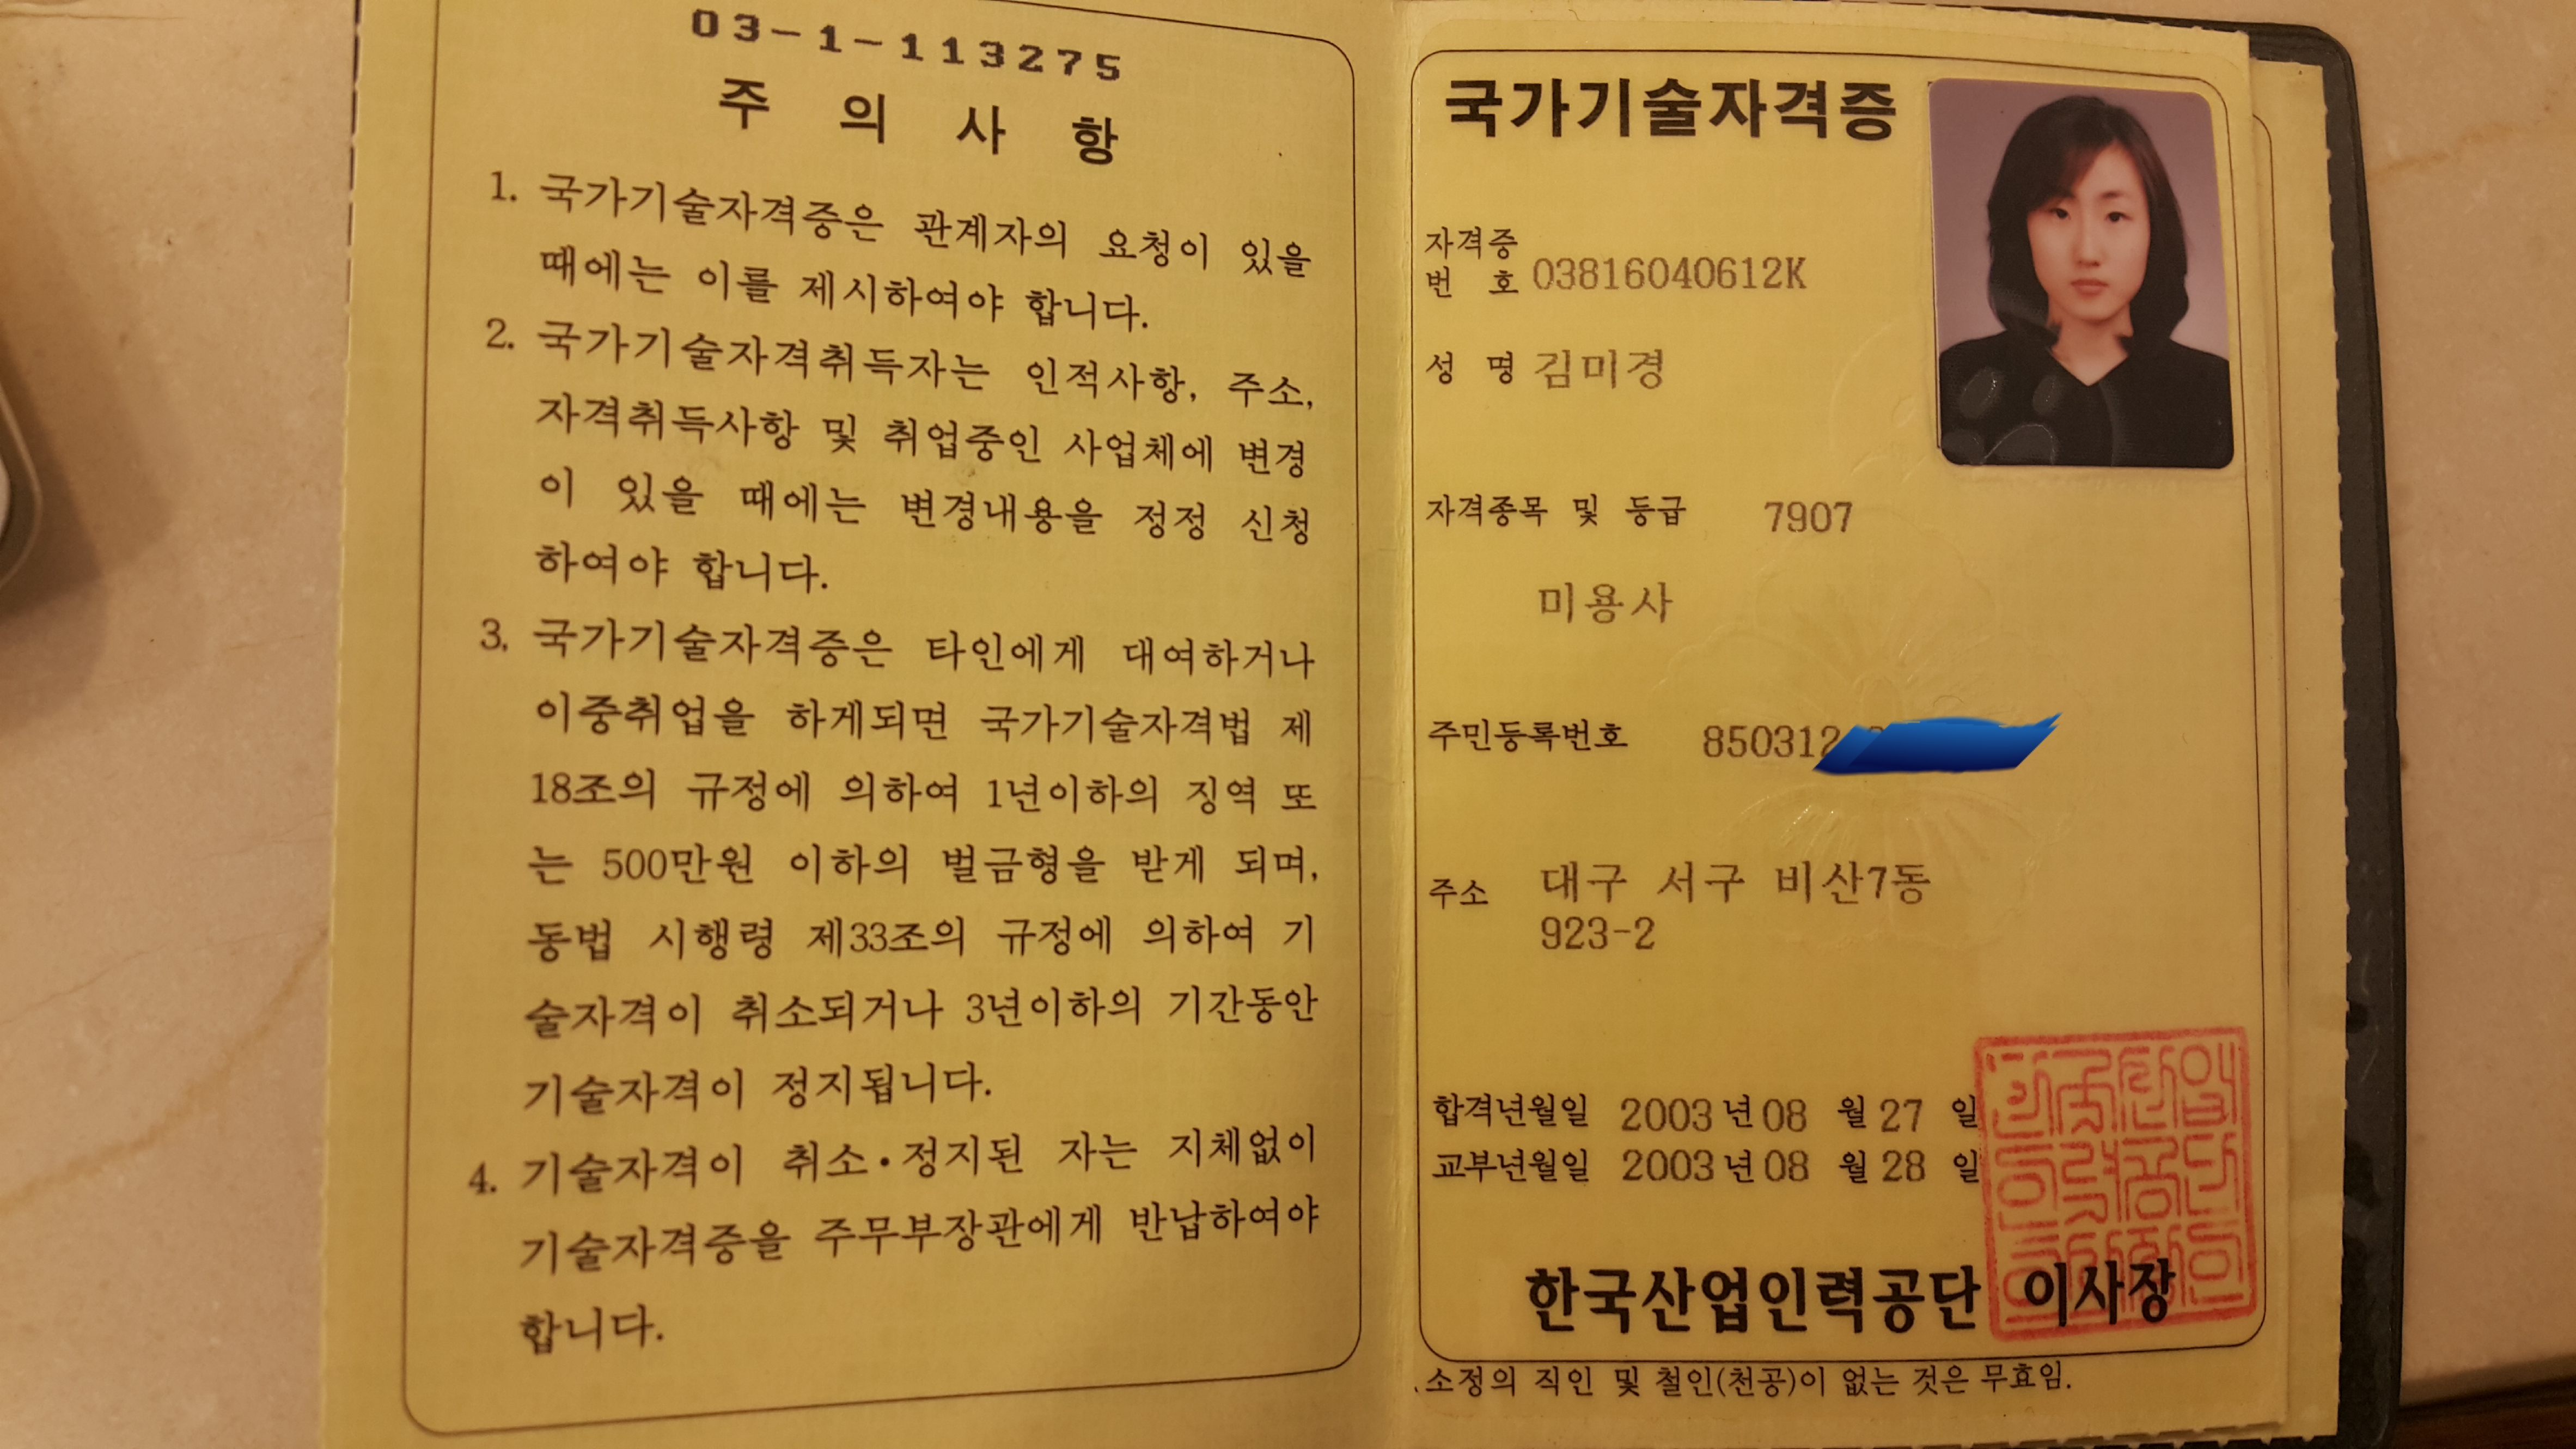 03-1-113275
주 의 사 항
1. 국가기술자격증은 관계자의 요청이 있을
때에는 이를 제시하여야 합니다.
2. 국가기술자격취득자는 인적사항, 주소,
자격취득사항 및 취업중인 사업체에 변경
이 있을 때에는 변경내용을 정정 신청
하여야 합니다.
3. 국가기술자격증은 타인에게 대여하거나
이중취업을 하게되면 국가기술자격법 제
18조의 규정에 의하여 1년이하의 징역 또
는 500만원 이하의 벌금형을 받게 되며,
동법 시행령 제33조의 규정에 의하여 기
술자격이 취소되거나 3년이하의 기간동안
기술자격이 정지됩니다.
4. 기술자격이 취소·정지된 자는 지체없이
기술자격증을 주무부장관에게 반납하여야
합니다.
국가기술자격증
자격증
번 호 03816040612K
성 명 김미경
자격종목 및 등급 7907
미용사
주민등록번호 850312
주소 대구 서구 비산7동
923-2
합격년월일 2003 년 08 월 27 일
교부년월일 2003 년 08 월 28 일
한국산업인력공단 이사장
소정의 직인 및 철인(천공)이 없는 것은 무효임.